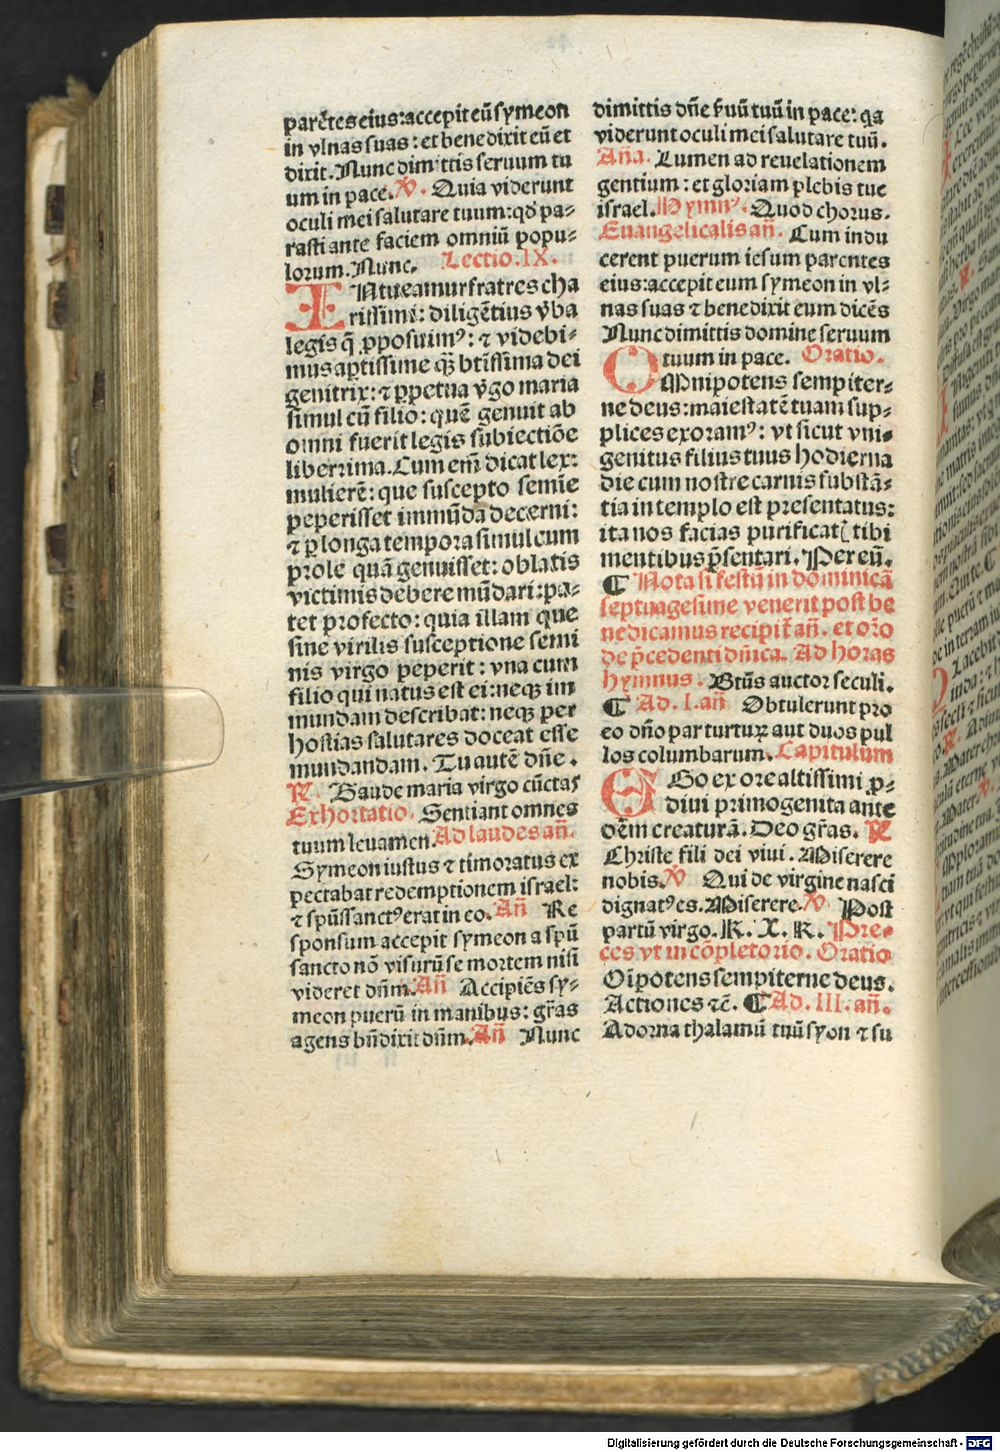 parētes eius: accepit eū symeon
in vlnas suas: et benedixit eū et
dixit. Nunc dimittis seruum tu
um in pace. V̄. Quia viderunt
oculi mei salutare tuum: qd̄ pa-
rasti ante faciem omniū popu-
lorum. Nunc. Lectio. IX.
INtueamur fratres cha
rissimi: diligētius v̄ba
legis q̄ ꝓposuimꝰ: ⁊ videbi-
mus aptissime qꝫ btīssima dei
genitrix: ⁊ ꝑpetua v̄go maria
simul cū filio: quē genuit ab
omni fuerit legis subiectiōe
liberrima. Cum em̄ dicat lex:
mulierē: que suscepto semīe
peperisset immūda decerni:
⁊ ꝑ longa tempora simul cum
prole quā genuisset: oblatis
victimis debere mūdari: pa-
tet profecto: quia illam que
sine virilis susceptione semi
nis virgo peperit: vna cum
filio qui natus est ei: neqꝫ im
mundam describat: neqꝫ per
hostias salutares doceat esse
mundandam. Tu autē dn̄e.
R̄. Gaude maria virgo cūctas
Exhortatio. Sentiant omnes
tuum leuamen. Ad laudes an̄.
Symeon iustus ⁊ timoratus ex
pectabat redemptionem israel:
⁊ spūs sanctꝰ erat in eo. An̄ Re
sponsum accepit symeon a spū
sancto nō visurū se mortem nisi
videret dn̄m. An̄ Accipiēs sy-
meon puerū in manibus: gr̄as
agens bn̄dixit dn̄m. An̄ Nunc
dimittis dn̄e ẜuū tuū in pace: qa
viderunt oculi mei salutare tuū.
An̄a. Lumen ad reuelationem
gentium: et gloriam plebis tue
israel. Hymnꝰ. Quod chorus.
Euangelicalis an̄. Cum indu
cerent puerum iesum parentes
eius: accepit eum symeon in vl-
nas suas ⁊ benedixit eum dicēs
Nunc dimittis domine seruum
tuum in pace. Oratio.
OMnipotens sempiter-
ne deus: maiestatē tuam sup-
plices exoramꝰ: vt sicut vni-
genitus filius tuus hodierna
die cum nostre carnis substā-
tia in templo est presentatus:
ita nos facias purificatis tibi
mentibus p̄sentari. Per eū.
¶ Nota si festū in dominicā
septuagesime venerit post be
nedicamus recipit̄ an̄. et or̄o
de p̄cedenti dn̄ica. Ad horas
hymnus. Btūs auctor seculi.
¶ Ad. I. an̄ Obtulerunt pro
eo dn̄o par turturꝝ aut duos pul
los columbarum. Capitulum
EGo ex ore altissimi ꝓ-
diui primogenita ante
oēm creaturā. Deo gr̄as. R̄
Christe fili dei viui. Miserere
nobis. V̄ Qui de virgine nasci
dignatꝰ es. Miserere. V̄ Post
partū virgo. K. X. K. Pre-
ces vt in cōpletorio. Oratio
Oīpotens sempiterne deus.
Actiones ⁊c̄. ¶ Ad. III. an̄.
Adorna thalamū tuū syon ⁊ su
Digitalisierung gefördert durch die Deutsche Forschungsgemeinschaft - DFG